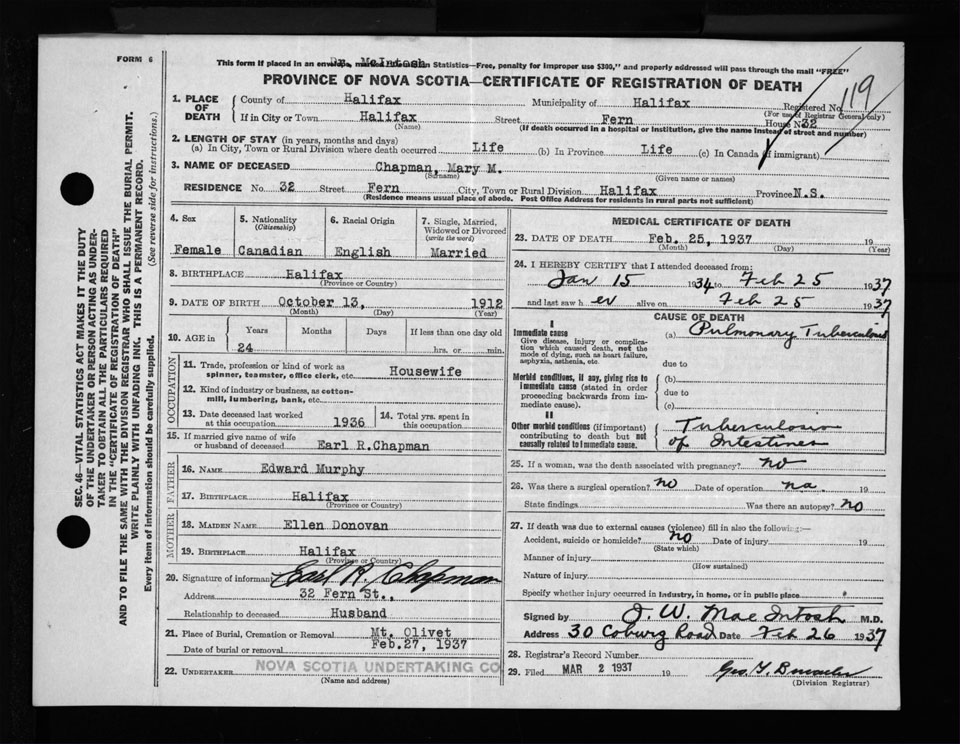 FORM 6
Dr. McIntosh
This form if placed in an envelope, marked Statistics—Free, penalty for improper use $300," and properly addressed will pass through the mail "FREE"
PROVINCE OF NOVA SCOTIA—CERTIFICATE OF REGISTRATION OF DEATH
119
1. PLACE OF DEATH County of Halifax Municipality of Halifax Registered No.
(For use of Registrar General only)
If in City or Town Halifax Street Fern House No. 32
(Name) (If death occurred in a hospital or institution, give the name instead of street and number)
2. LENGTH OF STAY (in years, months and days)
(a) In City, Town or Rural Division where death occurred Life (b) In Province Life (c) In Canada (if immigrant)
3. NAME OF DECEASED Chapman, Mary M.
(Surname) (Given name or names)
RESIDENCE No. 32 Street Fern City, Town or Rural Division Halifax Province N.S.
(Residence means usual place of abode. Post Office Address for residents in rural parts not sufficient)
4. Sex
Female
5. Nationality
(Citizenship)
Canadian
6. Racial Origin
English
7. Single, Married,
Widowed or Divorced
(write the word)
Married
8. BIRTHPLACE Halifax
(Province or Country)
9. DATE OF BIRTH October 13, 1912
(Month) (Day) (Year)
10. AGE in Years Months Days If less than one day old
24 hrs. or min.
OCCUPATION
11. Trade, profession or kind of work as
spinner, teamster, office clerk, etc. Housewife
12. Kind of industry or business, as cotton-
mill, lumbering, bank, etc.
13. Date deceased last worked
at this occupation 1936
14. Total yrs. spent in
this occupation
15. If married give name of wife
or husband of deceased Earl R.Chapman
FATHER
16. NAME Edward Murphy
17. BIRTHPLACE Halifax
(Province or Country)
MOTHER
18. MAIDEN NAME Ellen Donovan
19. BIRTHPLACE Halifax
(Province or Country)
20. Signature of informant Earl R. Chapman
Address 32 Fern St.,
Relationship to deceased Husband
21. Place of Burial, Cremation or Removal Mt. Olivet
Date of burial or removal Feb.27, 1937
22. UNDERTAKER NOVA SCOTIA UNDERTAKING CO
(Name and address)
MEDICAL CERTIFICATE OF DEATH
23. DATE OF DEATH Feb. 25, 1937 19
(Month) (Day) (Year)
24. I HEREBY CERTIFY that I attended deceased from:
Jan 15 1934 to Feb 25 1937
and last saw h er alive on Feb 25 1937
CAUSE OF DEATH
I
Immediate cause (a) Pulmonary Tuberculosis
Give disease, injury or complica-
tion which caused death, not the
mode of dying, such as heart failure,
asphyxia, asthenia, etc.
due to
Morbid conditions, if any, giving rise to
immediate cause (stated in order
proceeding backwards from im-
mediate cause).
(b)
due to
(c)
II
Other morbid conditions (if important)
contributing to death but not
causally related to immediate cause.
Tuberculosis
of Intestines
25. If a woman, was the death associated with pregnancy? no
26. Was there a surgical operation? no Date of operation na. 19
State findings Was there an autopsy? no
27. If death was due to external causes (violence) fill in also the following:—
Accident, suicide or homicide? no Date of injury 19
(State which)
Manner of injury
(How sustained)
Nature of injury
Specify whether injury occurred in industry, in home, or in public place
Signed by J. W. MacIntosh M.D.
Address 30 Coburg Road Date Feb 26 1937
28. Registrar's Record Number
29. Filed MAR 2 1937 19
(Division Registrar)
SEC. 46—VITAL STATISTICS ACT MAKES IT THE DUTY
OF THE UNDERTAKER OR PERSON ACTING AS UNDER-
TAKER TO OBTAIN ALL THE PARTICULARS REQUIRED
IN THE "CERTIFICATE OF REGISTRATION OF DEATH"
AND TO FILE THE SAME WITH THE DIVISION REGISTRAR WHO SHALL ISSUE THE BURIAL PERMIT.
WRITE PLAINLY WITH UNFADING INK. THIS IS A PERMANENT RECORD.
Every item of information should be carefully supplied. (See reverse side for instructions.)